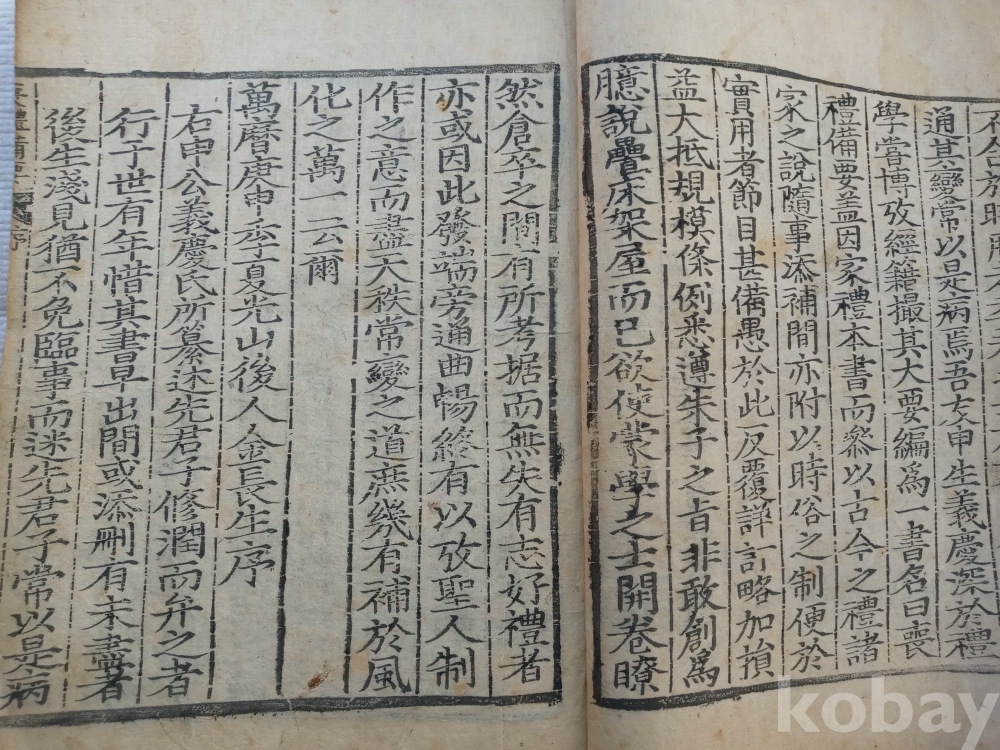 通其變常以是病焉吾友申生義慶深於禮
學嘗博攷經籍撮其大要編爲一書名曰喪
禮備要盖因家禮本書而叅以古今之禮諸
家之說隨事添補間亦附以時俗之制便於
實用者節目甚備愚於此反覆詳訂略加損
益大抵規模條例悉遵朱子之旨非敢創爲
臆說疊床架屋而已欲使蒙學之士開卷瞭
然倉卒之間有所考据而無失有志好禮者
亦或因此發端旁通曲暢終有以攷聖人制
作之意而盡天秩常變之道庶幾有補於風
化之萬一云爾
萬曆庚申季夏光山後人金長生序
右申公義慶氏所纂述先君子修潤而弁之者
行于世有年惜其書早出間或添刪有未盡者
後生淺見猶不免臨事而迷先君子常以是病
kobay